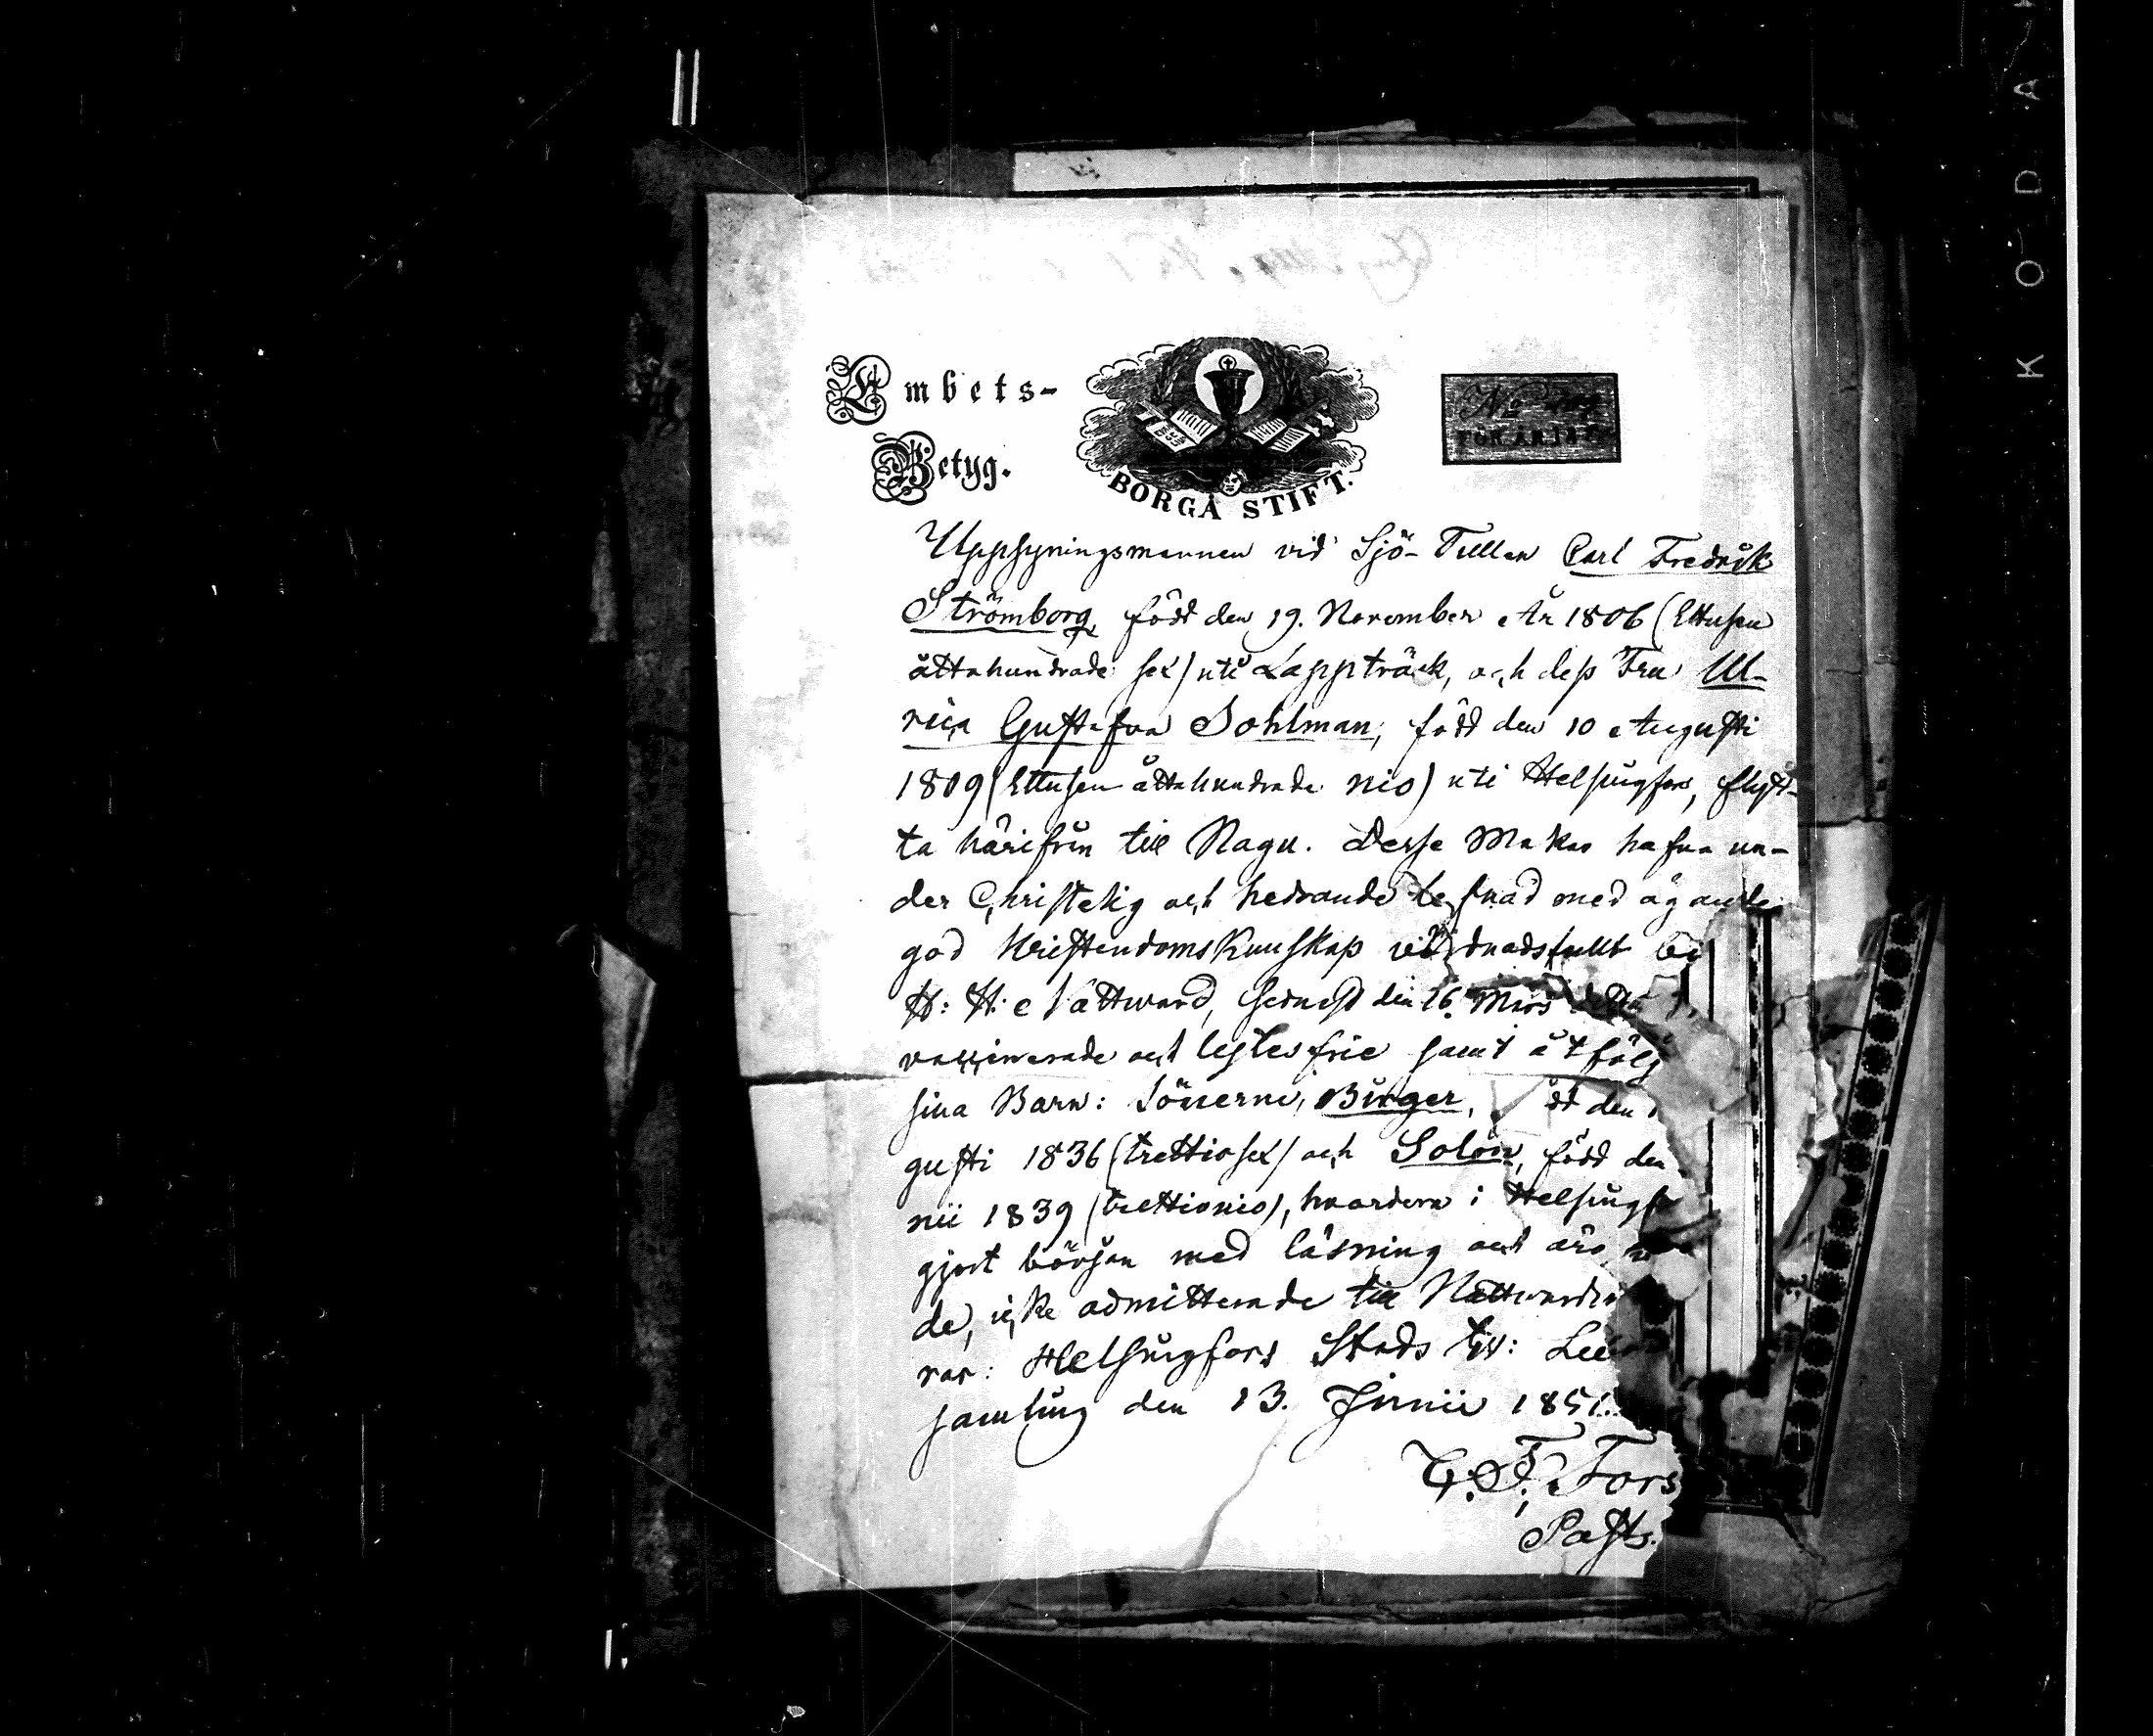 Embets-
Betyg.
BORGÅ STIFT.
No
FÖR ÅR 18
Uppsyningsmannen vid Sjö-Tullen Carl Fredrik
Strömborg, född den 19. November År 1806 (Ettusen
åttahundrade sex) uti Lappträsk, och dess Fru Ul-
rica Gustafva Sohlman, född den 10 Augusti
1809 (Ettusen åttahundrade nio) uti Helsingfors, flytt-
ta härifrån till Nagu. Desse Makar hafva un-
der Christelig och hedrande lefnad med ägande
god Kristendomskunskap vördnadsfullt be
H: H: Nattward, sednast den 16. Mars
vaccinerade och lystes frie samt åtfölj
sina Barn: Sönerne, Birger, född den
gusti 1836 (trettiosex) och Solon, född den
nii 1839 (trettionio), hvardera i Helsingfo
gjort början med läsning och äro
de, icke admitterade till Nattwarden
rar: Helsingfors Stads Ev: Lu
samling den 13. Junii 1851.
C. F. Fors
Past.
KODAK